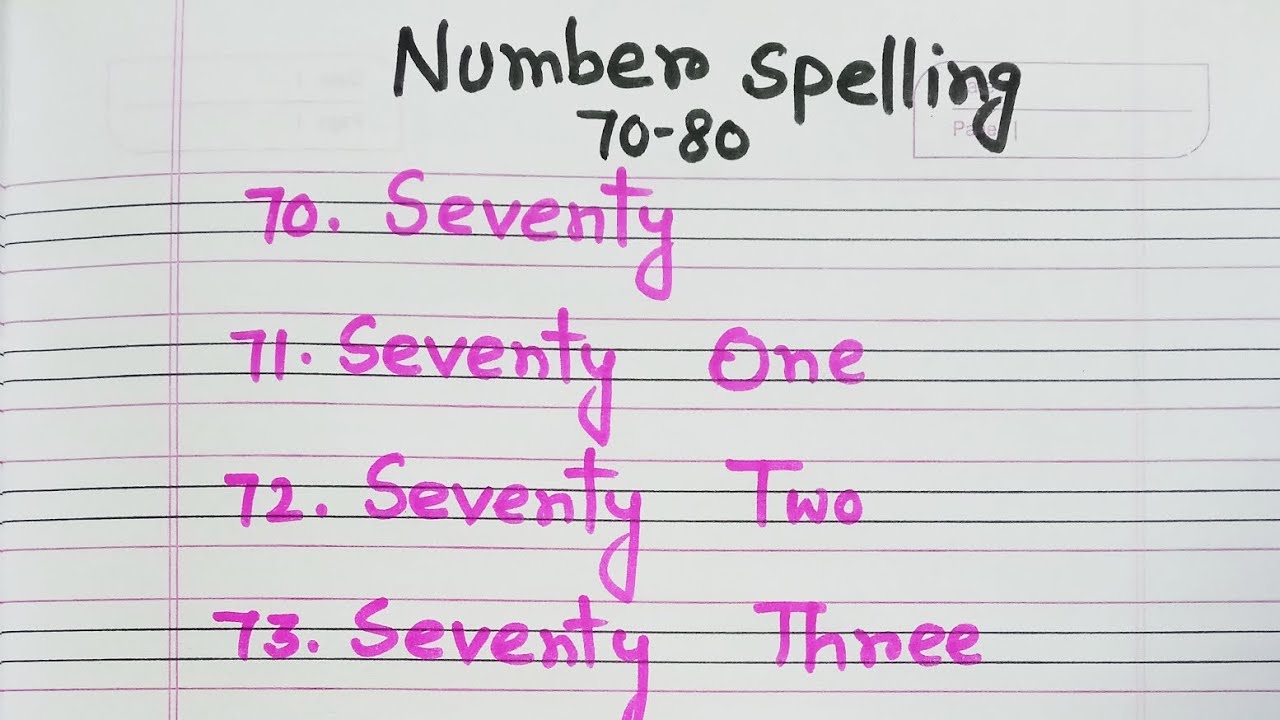 Number Spelling
70-80
70. Seventy
71. Seventy One
72. Seventy Two
73. Seventy Three